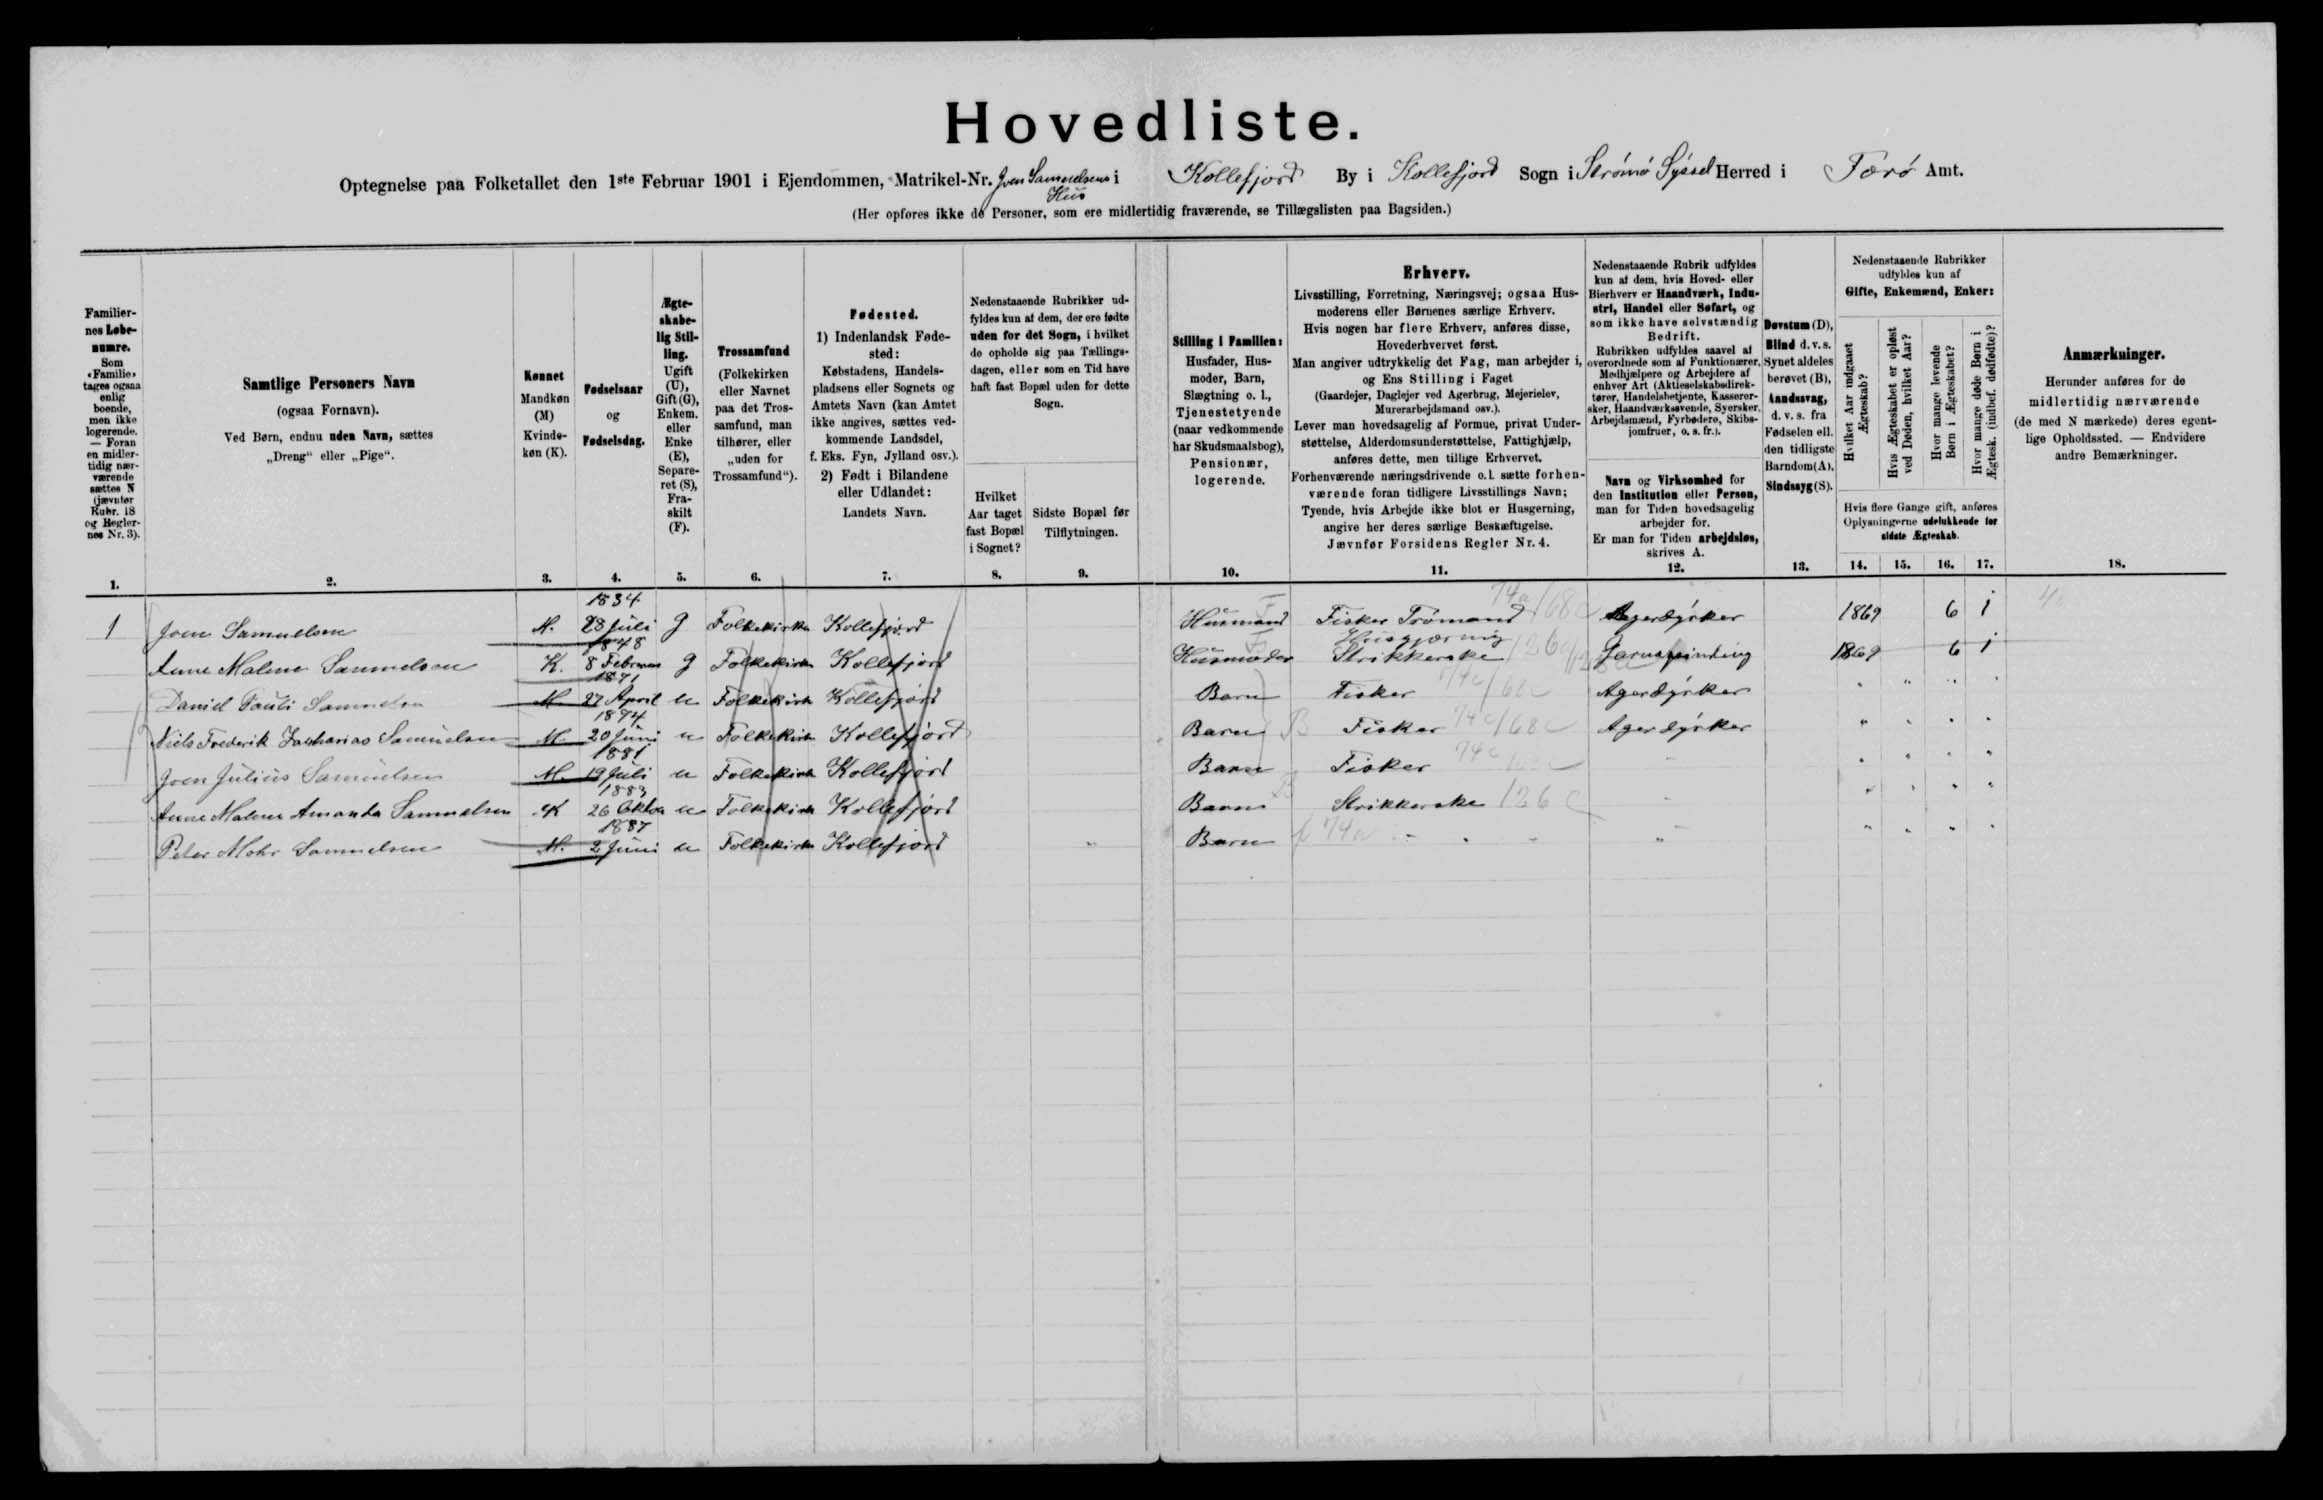 Hovedliste.
Optegnelse paa Folketallet den 1ste Februar 1901 i Ejendommen, Matrikel-Nr. Joen Samuelsens Hus i Kollefjord By i Kollefjord Sogn i Strömö Syssel Herred i Færø Amt.
(Her opføres ikke de Personer, som ere midlertidig fraværende, se Tillægslisten paa Bagsiden.)
Familier-
nes Løbe-
numre.
Som
«Familie»
tages ogsaa
enlig
boende,
men ikke
logerende.
— Foran
en midler-
tidig nær-
værende
sættes N
(jævnfør
Rubr. 18
og Regler-
nes Nr. 3).
1.
Samtlige Personers Navn
(ogsaa Fornavn).
Ved Børn, endnu uden Navn, sættes
„Dreng“ eller „Pige“.
2.
Kønnet
Mandkøn
(M)
Kvinde-
køn (K).
3.
Fødselsaar
og
Fødselsdag.
4.
Ægte-
skabe-
lig Stil-
ling.
Ugift
(U),
Gift (G),
Enkem.
eller
Enke
(E),
Separe-
ret (S),
Fra-
skilt
(F).
5.
Trossamfund
(Folkekirken
eller Navnet
paa det Tros-
samfund, man
tilhører, eller
„uden for
Trossamfund“).
6.
Fødested.
1) Indenlandsk Føde-
sted:
Købstadens, Handels-
pladsens eller Sognets og
Amtets Navn (kan Amtet
ikke angives, sættes ved-
kommende Landsdel,
f. Eks. Fyn, Jylland osv.).
2) Født i Bilandene
eller Udlandet:
Landets Navn.
7.
Nedenstaaende Rubrikker ud-
fyldes kun af dem, der ere fødte
uden for det Sogn, i hvilket
de opholde sig paa Tællings-
dagen, eller som en Tid have
haft fast Bopæl uden for dette
Sogn.
Hvilket
Aar taget
fast Bopæl
i Sognet?
8.
Sidste Bopæl før
Tilflytningen.
9.
Stilling i Familien:
Husfader, Hus-
moder, Barn,
Slægtning o. l.,
Tjenestetyende
(naar vedkommende
har Skudsmaalsbog),
Pensionær,
logerende.
10.
Erhverv.
Livsstilling, Forretning, Næringsvej; ogsaa Hus-
moderens eller Børnenes særlige Erhverv.
Hvis nogen har flere Erhverv, anføres disse,
Hovederhvervet først.
Man angiver udtrykkelig det Fag, man arbejder i,
og Ens Stilling i Faget
(Gaardejer, Daglejer ved Agerbrug, Mejerielev,
Murerarbejdsmand osv.).
Lever man hovedsagelig af Formue, privat Under-
støttelse, Alderdomsunderstøttelse, Fattighjælp,
anføres dette, men tillige Erhvervet.
Forhenværende næringsdrivende o. l. sætte forhen-
værende foran tidligere Livsstillings Navn;
Tyende, hvis Arbejde ikke blot er Husgerning,
angive her deres særlige Beskæftigelse.
Jævnfør Forsidens Regler Nr. 4.
11.
Nedenstaaende Rubrik udfyldes
kun af dem, hvis Hoved- eller
Bierhverv er Haandværk, Indu-
stri, Handel eller Søfart, og
som ikke have selvstændig
Bedrift.
Rubrikken udfyldes saavel af
overordnede som af Funktionærer,
Medhjælpere og Arbejdere af
enhver Art (Aktieselskabsdirek-
tører, Handelsbetjente, Kasserer-
sker, Haandværkssvende, Syersker,
Arbejdsmænd, Fyrbødere, Skibs-
jomfruer, o. s. fr.).
Navn og Virksomhed for
den Institution eller Person,
man for Tiden hovedsagelig
arbejder for.
Er man for Tiden arbejdsløs,
skrives A.
12.
Døvstum (D),
Blind d. v. s.
Synet aldeles
berøvet (B),
Aandssvag,
d. v. s. fra
Fødselen ell.
den tidligste
Barndom (A),
Sindssyg (S).
13.
Nedenstaaende Rubrikker
udfyldes kun af
Gifte, Enkemænd, Enker:
Hvilket Aar indgaaet
Ægteskab?
Hvis Ægteskabet er opløst
ved Døden, hvilket Aar?
Hvor mange levende
Børn i Ægteskabet?
Hvor mange døde Børn i
Ægtesk. (indbef. dødfødte)?
Hvis flere Gange gift, anføres
Oplysningerne udelukkende for
sidste Ægteskab.
14. 15. 16. 17.
Anmærkninger.
Herunder anføres for de
midlertidig nærværende
(de med N mærkede) deres egent-
lige Opholdssted. — Endvidere
andre Bemærkninger.
18.
1 Joen Samuelsen M. 1834 28 Juli g Folkekirke Kollefjord Husmand Fisker Tromand 74a/68c Agerdÿrker 1869 6 1
Anne Malene Samuelsen K. 1848 8 Februar g Folkekirke Kollefjord Husmoder Husgjærning Strikkerske 126 Garnspinding 1869 6 1
Daniel Pauli Samuelsen M 1871 27 April u Folkekirke Kollefjord Barn Fisker 74c/68c Agerdÿrker
Niels Frederik Zacharias Samuelsen M. 1874 20 Juni u Folkekirke Kollefjord Barn B Fisker 74c/68c Agerdÿrker
Joen Julius Samuelsen M. 1881 19 Juli u Folkekirke Kollefjord Barn Fisker 74c
Anne Malene Amanda Samuelsen K 1883 26 Oktbr u Folkekirke Kollefjord Barn B Strikkerske 126 c
Peter Mohr Samuelsen M. 1887 2 Juni u Folkekirke Kollefjord Barn 74a